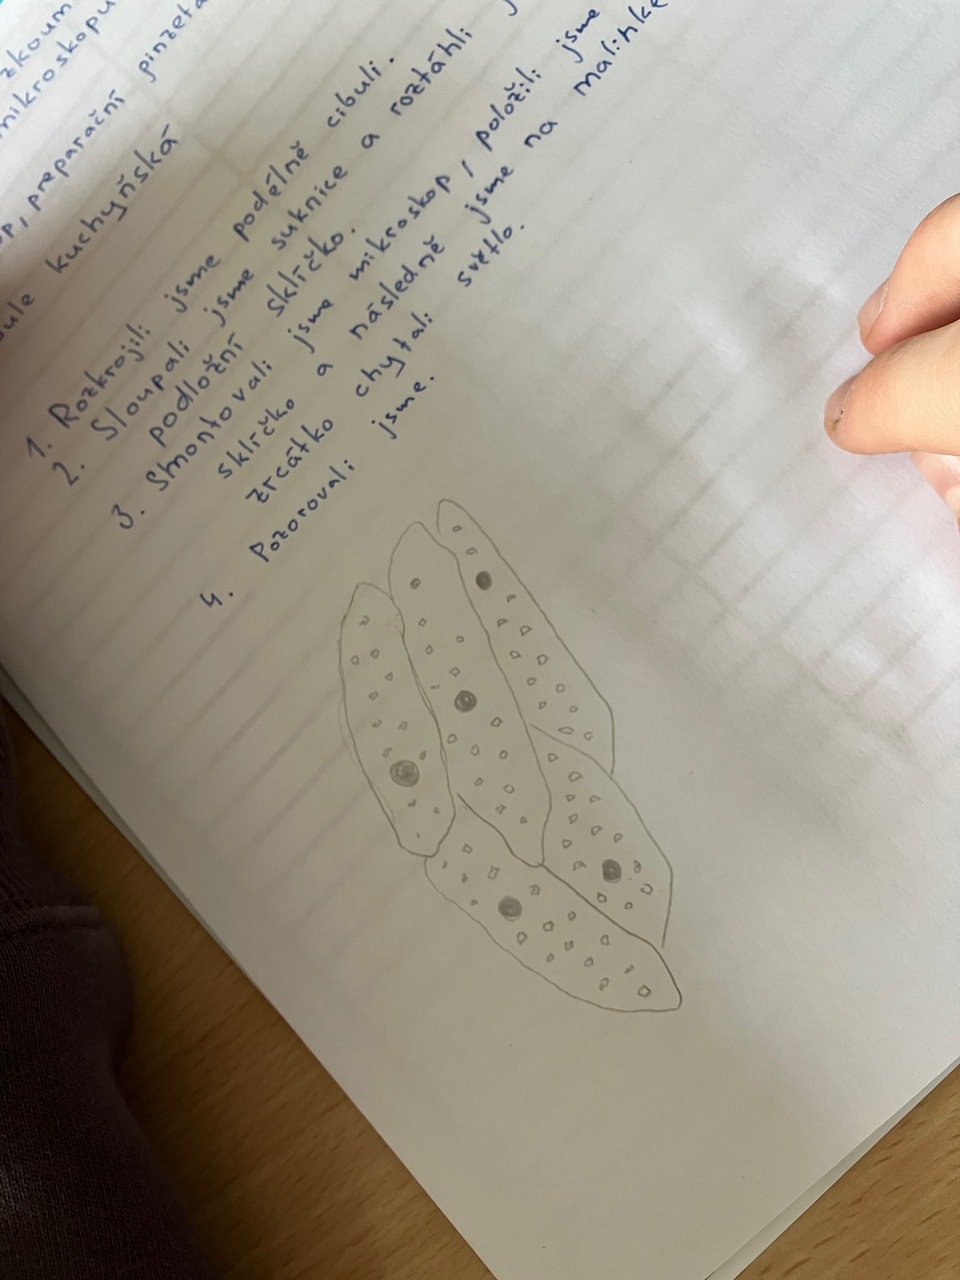 zkoum
mikroskopu
preparační pinzeta
kuchyňská
1. Rozkrojili jsme podélně cibuli.
2. Sloupali jsme suknice a roztáhli
podložní sklíčko.
3. Smontovali jsme mikroskop, položili jsme
sklíčko a následně jsme na malinké
zrcátko chytali světlo.
4. Pozorovali jsme.